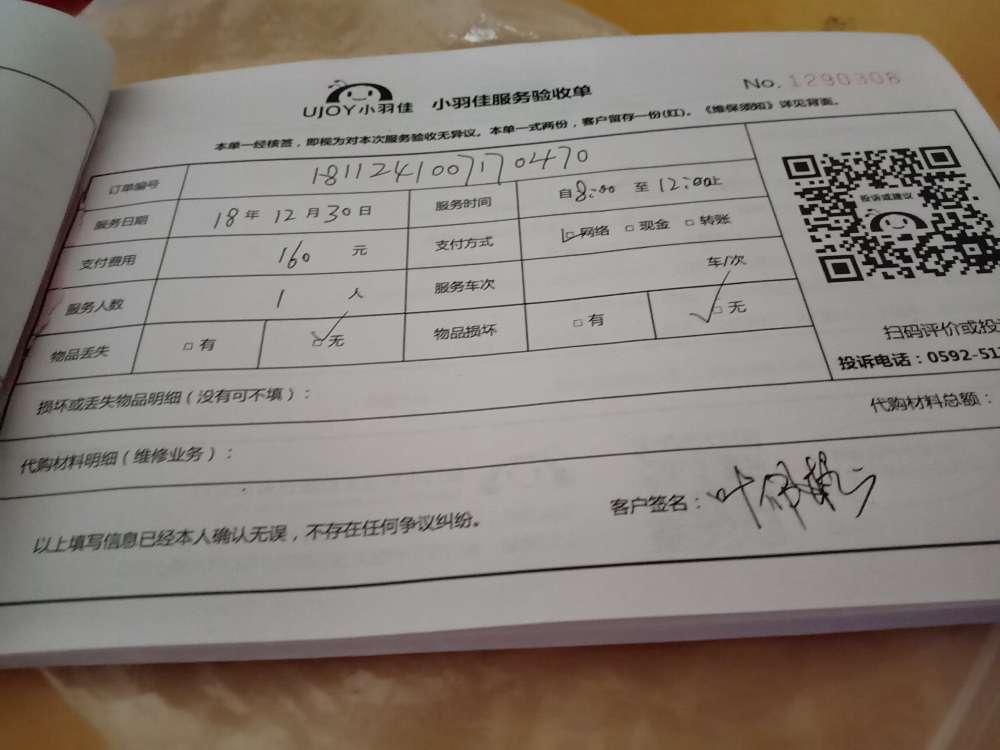 UJOY小羽佳 小羽佳服务验收单 No. 1290308
本单一经核签，即视为对本次服务验收无异议。本单一式两份，客户留存一份(红)。《维保须知》详见背面。
订单编号 181124100717 0470
服务日期 18年12月30日 服务时间 自8:00 至 12:00止
支付费用 160 元 支付方式 □网络 □现金 □转账
服务人数 1 人 服务车次 车/次
物品丢失 □有 □无 物品损坏 □有 □无
投诉或建议
扫码评价或投
投诉电话：0592-51
损坏或丢失物品明细（没有可不填）：
代购材料明细（维修业务）： 代购材料总额：
以上填写信息已经本人确认无误，不存在任何争议纠纷。 客户签名：叶